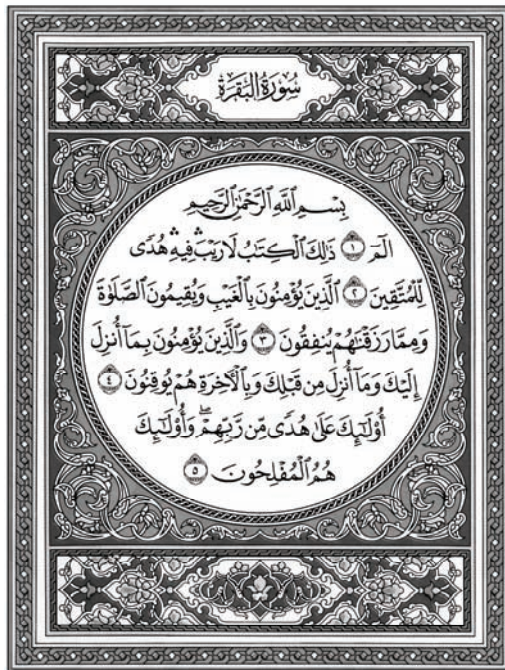 سُورَةُ الْبَقَرَةِ
بِسْمِ اللَّهِ الرَّحْمَٰنِ الرَّحِيمِ
الٓمٓ ١ ذَٰلِكَ الْكِتَابُ لَا رَيْبَ ۛ فِيهِ ۛ هُدًى
لِلْمُتَّقِينَ ٢ الَّذِينَ يُؤْمِنُونَ بِالْغَيْبِ وَيُقِيمُونَ الصَّلَوٰةَ
وَمِمَّا رَزَقْنَٰهُمْ يُنفِقُونَ ٣ وَالَّذِينَ يُؤْمِنُونَ بِمَا أُنزِلَ
إِلَيْكَ وَمَا أُنزِلَ مِن قَبْلِكَ وَبِالْآخِرَةِ هُمْ يُوقِنُونَ ٤
أُولَٰٓئِكَ عَلَىٰ هُدًى مِّن رَّبِّهِمْ ۖ وَأُولَٰٓئِكَ
هُمُ الْمُفْلِحُونَ ٥